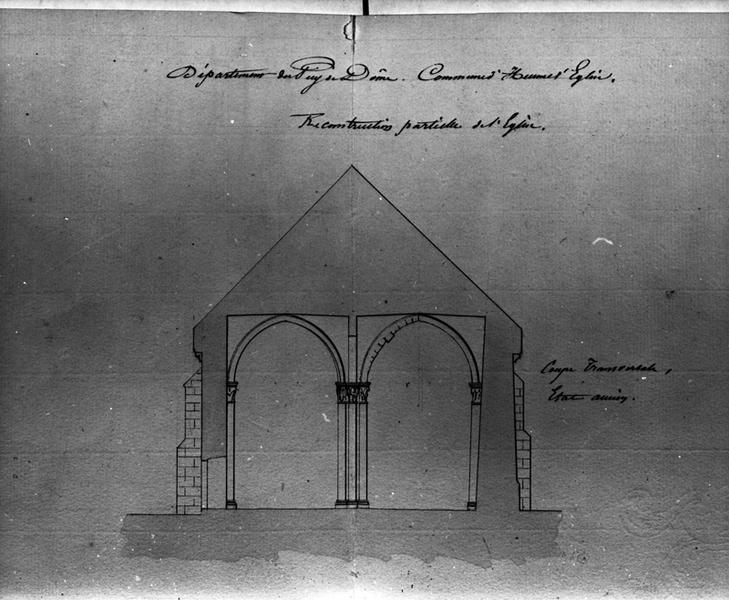 Département du Puy de Dôme. Commune d'Heume l'Eglise.
Reconstruction partielle de l'Eglise.
Coupe Transversale,
Etat ancien.